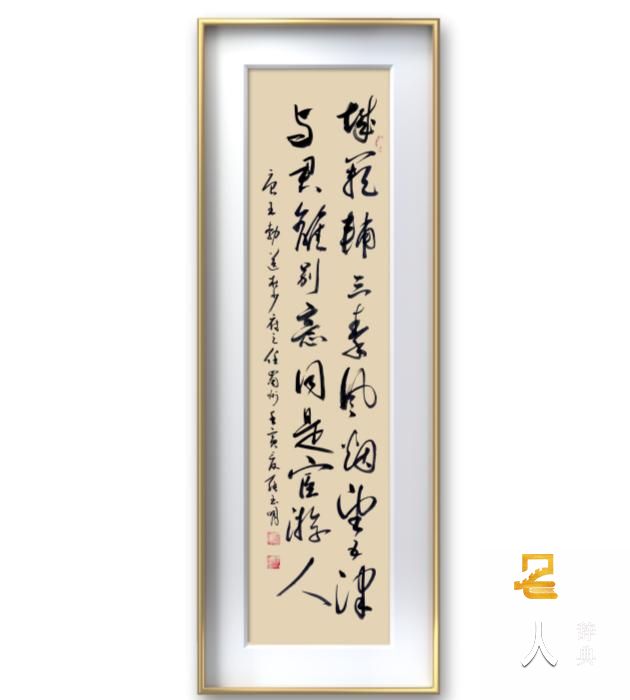 城阙輔三秦风烟望五津
与君離别意同是宦游人
唐王勃送杜少府之任蜀州壬寅夏
名
人
辞典